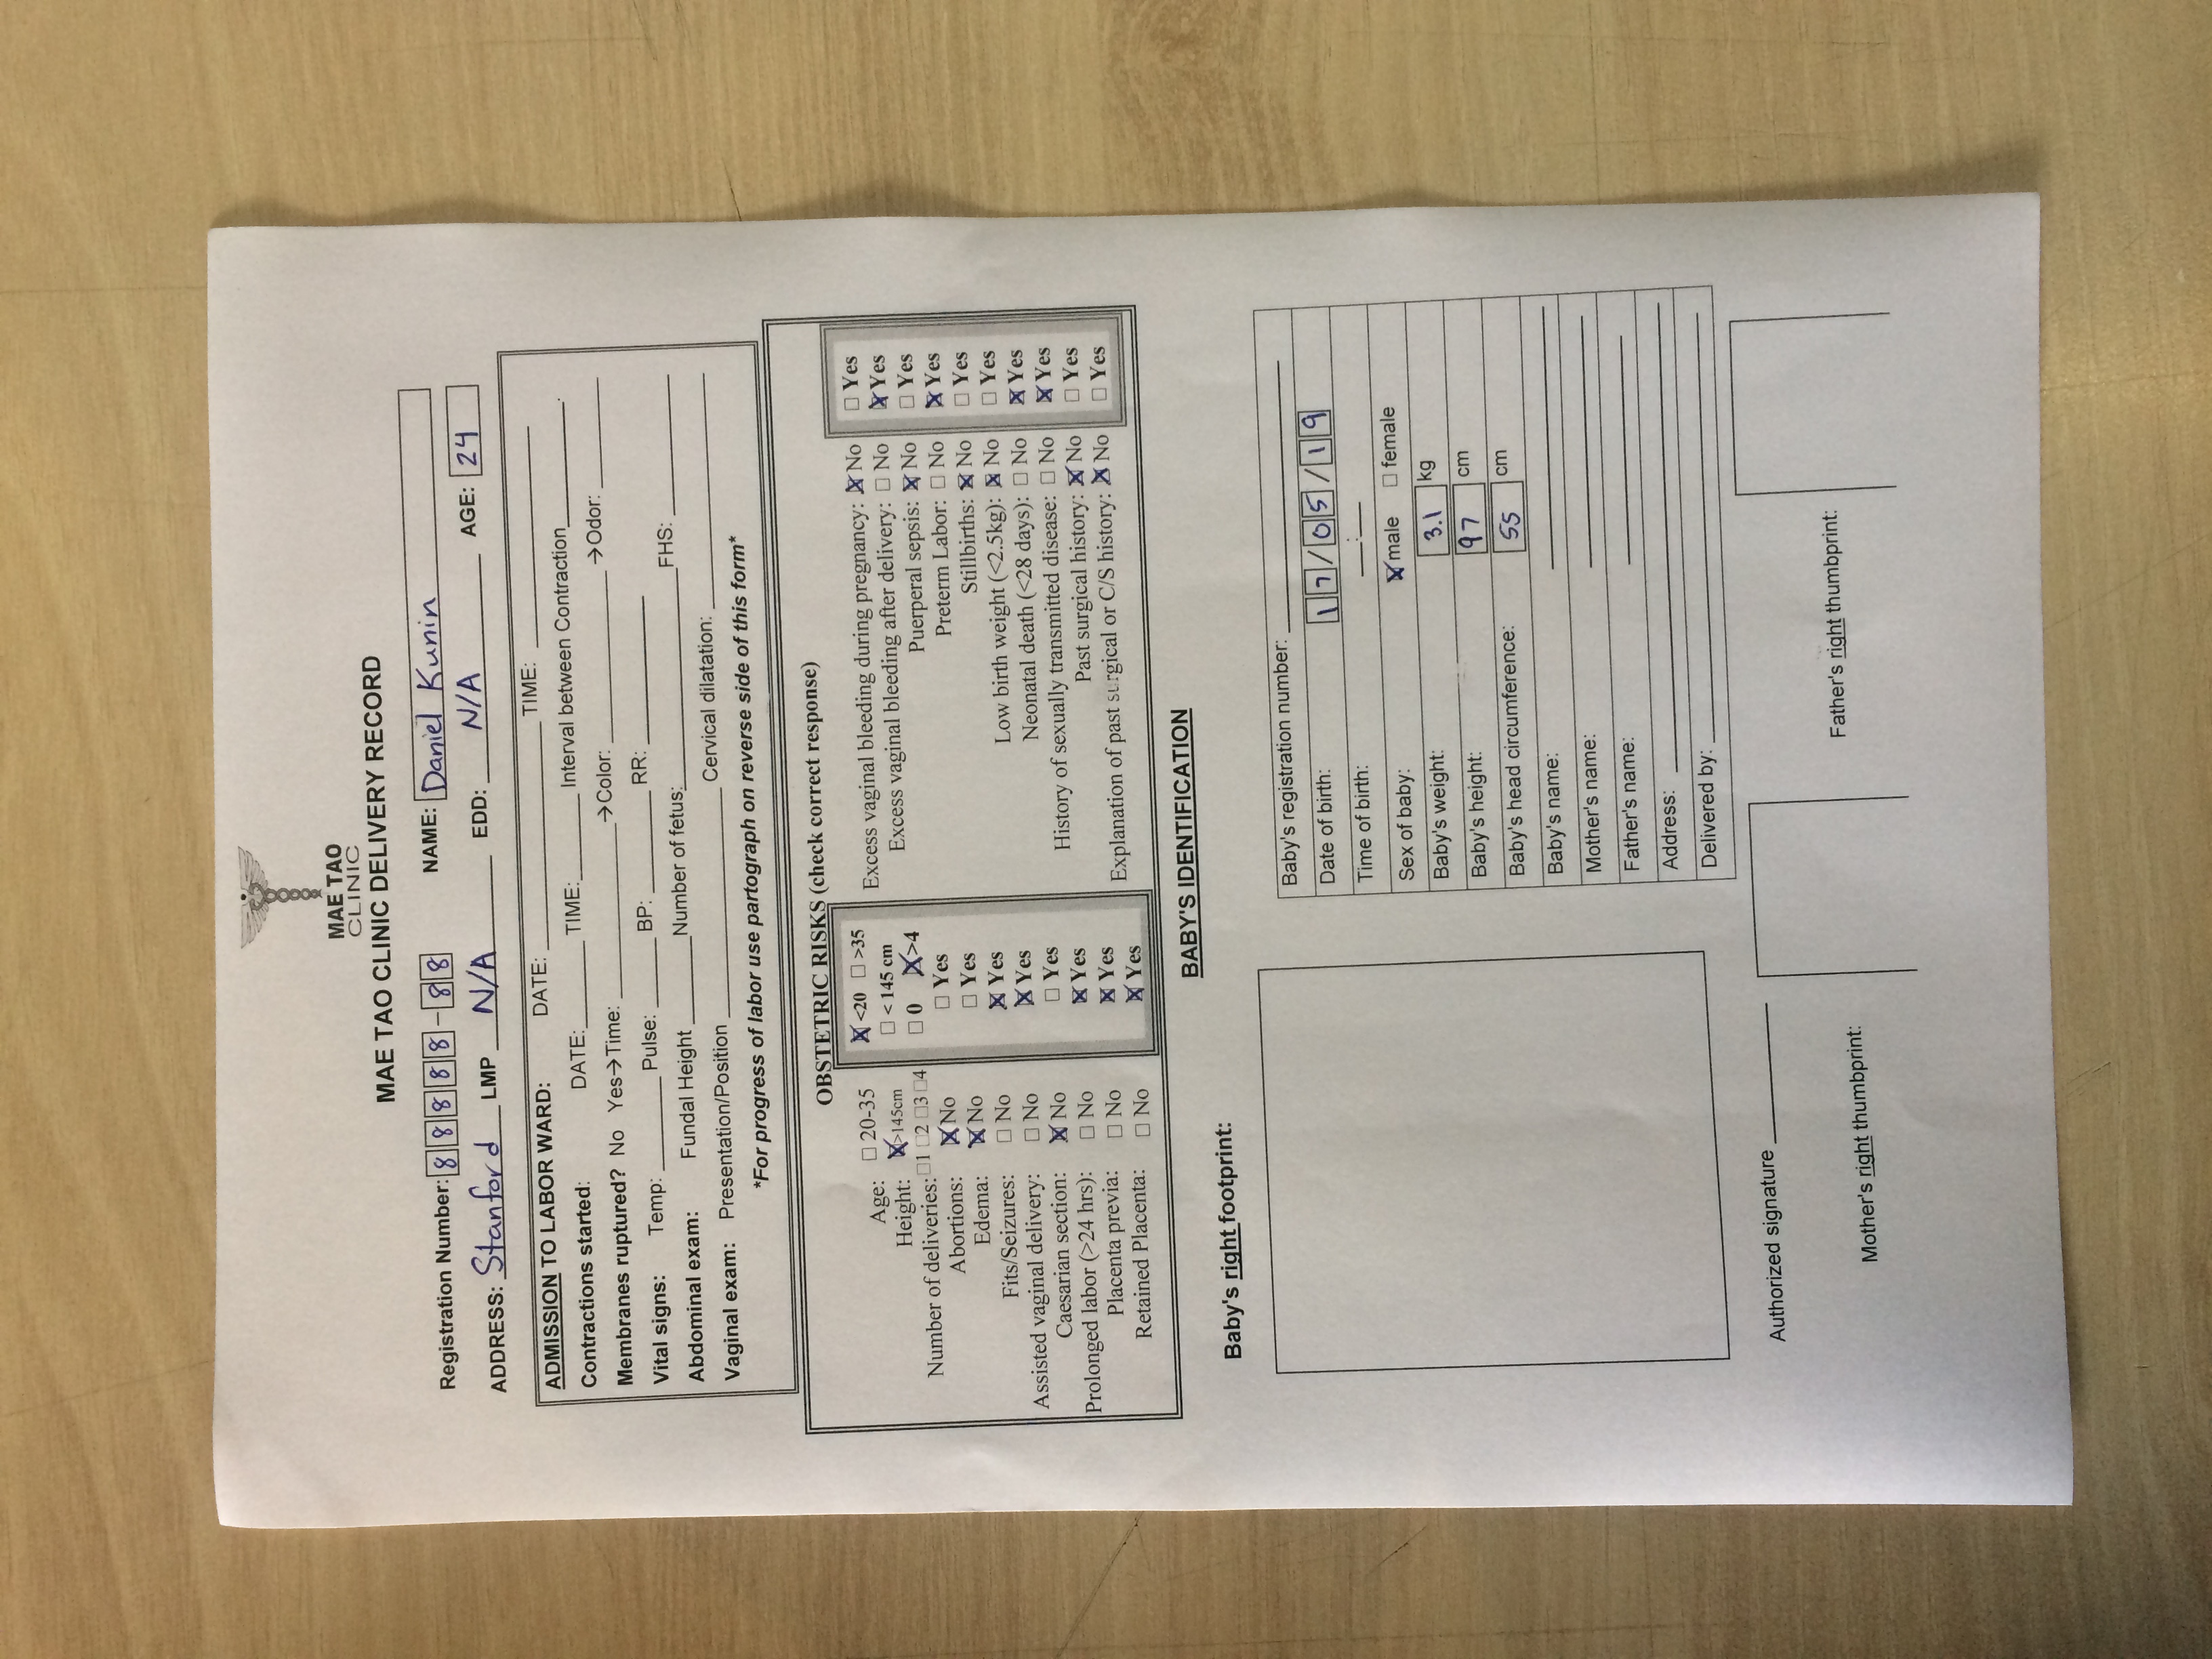 MAE TAO
CLINIC
MAE TAO CLINIC DELIVERY RECORD
Registration Number: 88888-88 NAME: Daniel Kunin
ADDRESS: Stanford LMP N/A EDD: N/A AGE: 24
ADMISSION TO LABOR WARD: DATE: TIME:
Contractions started: DATE: TIME: Interval between Contraction .
Membranes ruptured? No Yes→Time: →Color: →Odor:
Vital signs: Temp: Pulse: BP: RR:
Abdominal exam: Fundal Height Number of fetus: FHS:
Vaginal exam: Presentation/Position Cervical dilatation:
*For progress of labor use partograph on reverse side of this form*
OBSTETRIC RISKS (check correct response)
Age: ☐ 20-35 ☒ <20 ☐ >35
Height: ☒ >145cm ☐ < 145 cm
Number of deliveries: ☐1 ☐2 ☐3 ☐4 ☐ 0 ☒ >4
Abortions: ☒ No ☐ Yes
Edema: ☒ No ☐ Yes
Fits/Seizures: ☐ No ☒ Yes
Assisted vaginal delivery: ☐ No ☒ Yes
Caesarian section: ☒ No ☐ Yes
Prolonged labor (>24 hrs): ☐ No ☒ Yes
Placenta previa: ☐ No ☒ Yes
Retained Placenta: ☐ No ☒ Yes
Excess vaginal bleeding during pregnancy: ☒ No ☐ Yes
Excess vaginal bleeding after delivery: ☐ No ☒ Yes
Puerperal sepsis: ☒ No ☐ Yes
Preterm Labor: ☐ No ☒ Yes
Stillbirths: ☒ No ☐ Yes
Low birth weight (<2.5kg): ☒ No ☐ Yes
Neonatal death (<28 days): ☐ No ☒ Yes
History of sexually transmitted disease: ☐ No ☒ Yes
Past surgical history: ☒ No ☐ Yes
Explanation of past surgical or C/S history: ☒ No ☐ Yes
BABY'S IDENTIFICATION
Baby's right footprint:
Baby's registration number:
Date of birth: 17/05/19
Time of birth: __:__
Sex of baby: ☒ male ☐ female
Baby's weight: 3.1 kg
Baby's height: 97 cm
Baby's head circumference: 55 cm
Baby's name:
Mother's name:
Father's name:
Address:
Delivered by:
Authorized signature
Mother's right thumbprint:
Father's right thumbprint: